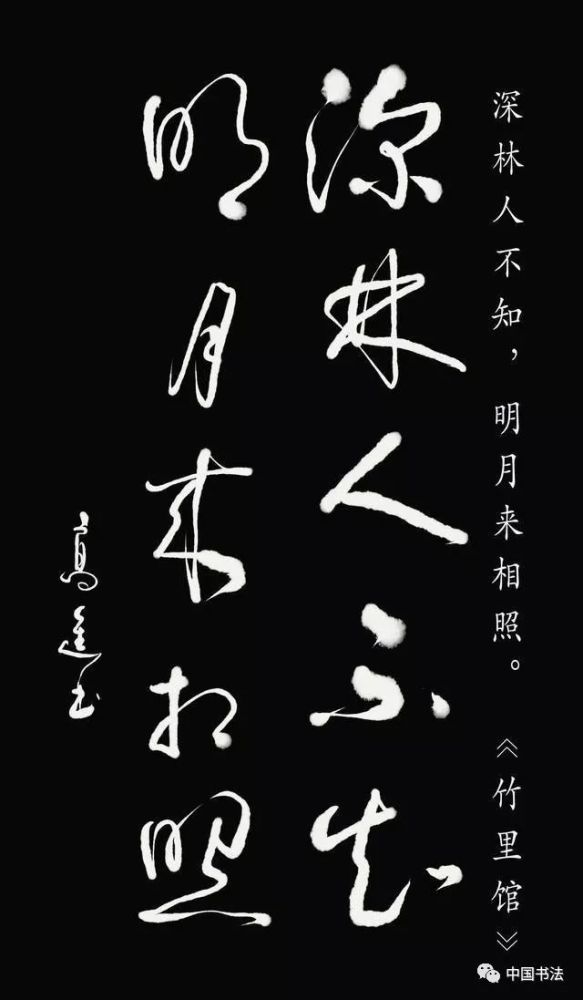 深林人不知，明月来相照。《竹里馆》
深林人不知
明月来相照
高进书
中国书法